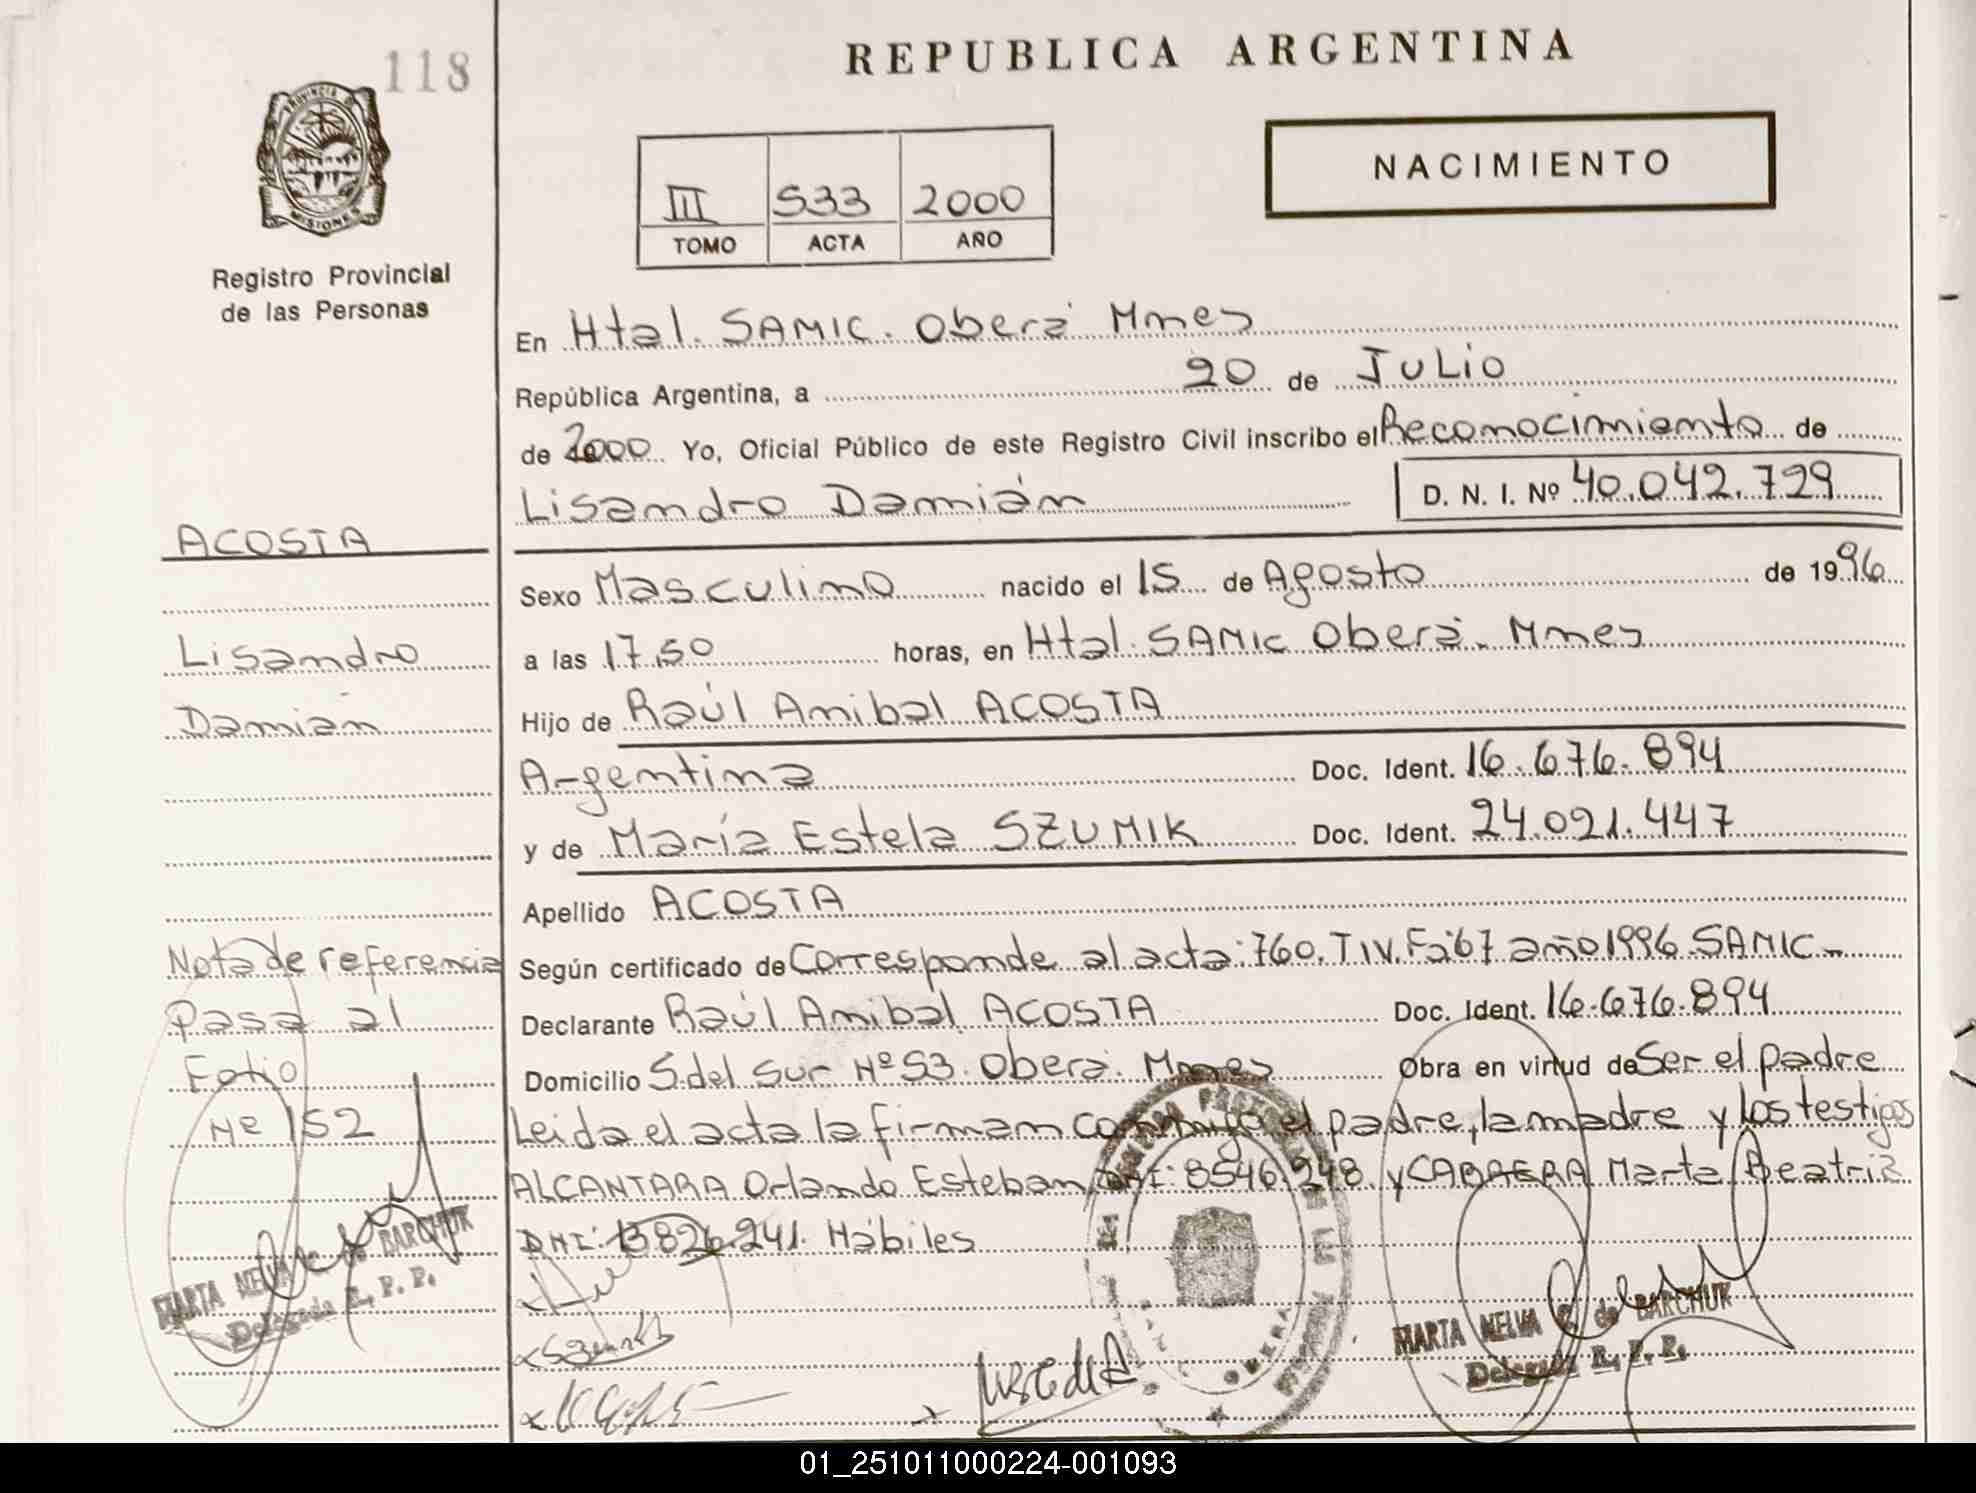 118
REPUBLICA ARGENTINA
PROVINCIA DE
MISIONES
Registro Provincial
de las Personas
NACIMIENTO
III 533 2000
TOMO ACTA AÑO
En Htal. SAMIC. Oberá Mnes
República Argentina, a 20 de JULIO
de 2000 Yo, Oficial Público de este Registro Civil inscribo el Reconocimiento de
Lisandro Damián D. N. I. Nº 40.042.729
ACOSTA
Sexo Masculino nacido el 15 de Agosto de 1996
Lisandro
a las 17,50 horas, en Htal. SAMIC Oberá. Mnes
Damián
Hijo de Raúl Anibal ACOSTA
Argentina Doc. Ident. 16.676.894
y de María Estela SZUMIK Doc. Ident. 24.021.447
Apellido ACOSTA
Nota de referencia
Según certificado de Corresponde al acta: 760. T IV. Fº 67 año 1996. SAMIC.-
Pasa al
Declarante Raúl Anibal ACOSTA Doc. Ident. 16.676.894
Folio
Domicilio S. del Sur Nº 53. Oberá. Mnes Obra en virtud de Ser el padre
Nº 152
Leida el acta la firman conmigo el padre, la madre y los testigos
ALCANTARA Orlando Esteban DNI: 8546.248 y CABRERA Marta Beatriz
DNI: 13826.241. Hábiles
MARTA NELVA de BARCHUK
Delegada R. P. P.
MARTA NELVA de BARCHUK
Delegada R. P. P.
OBERA
01_251011000224-001093